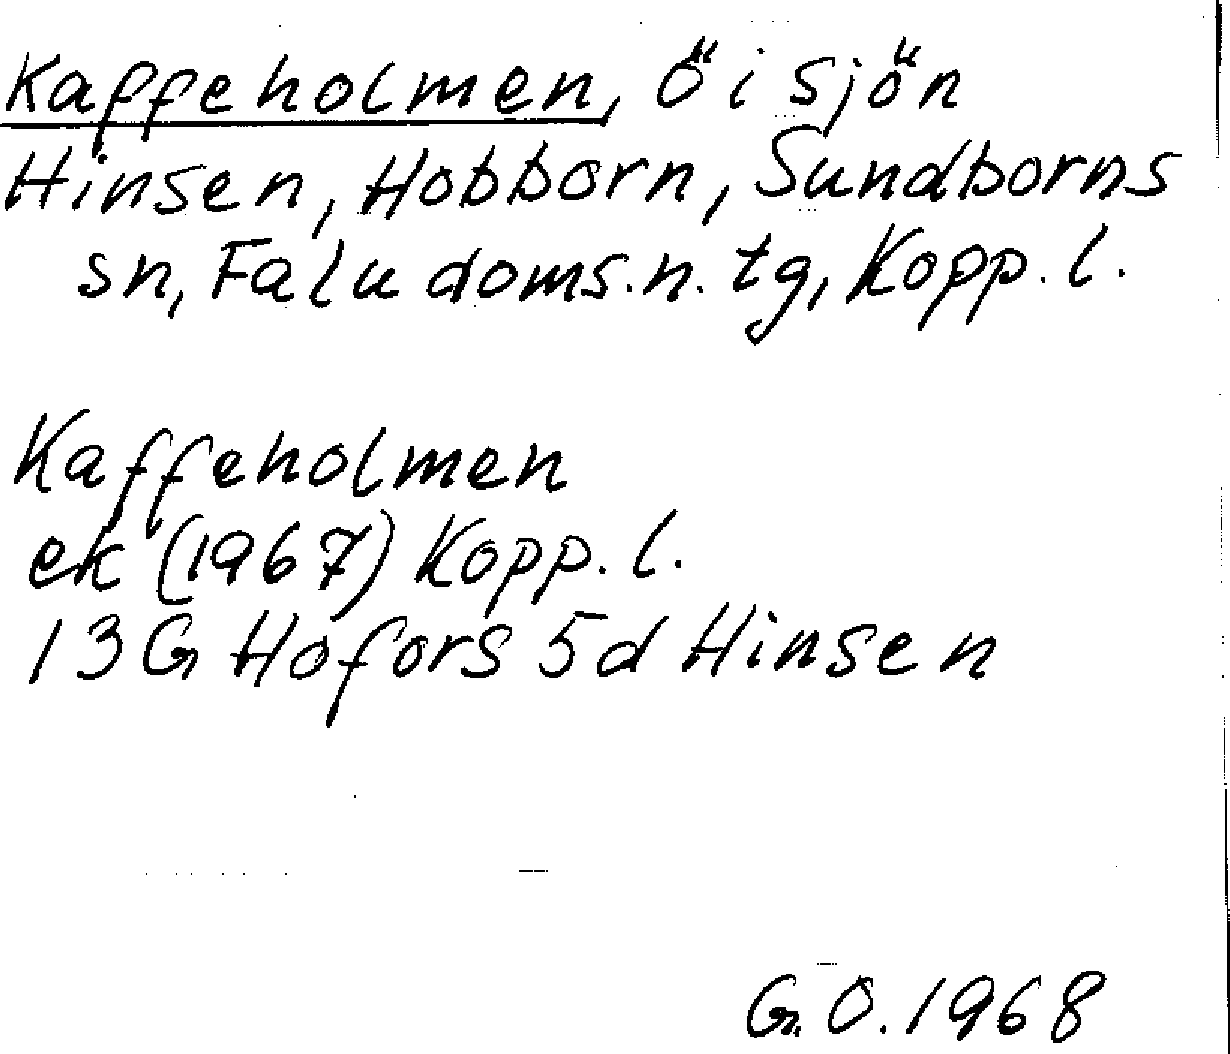 Kaffeholmen, Ö i sjön
Hinsen, Hobborn, Sundborns
sn, Falu doms.n. tg, Kopp. l.
Kaffeholmen
ek (1967) Kopp. l.
13G Hofors 5d Hinsen
G.O. 1968